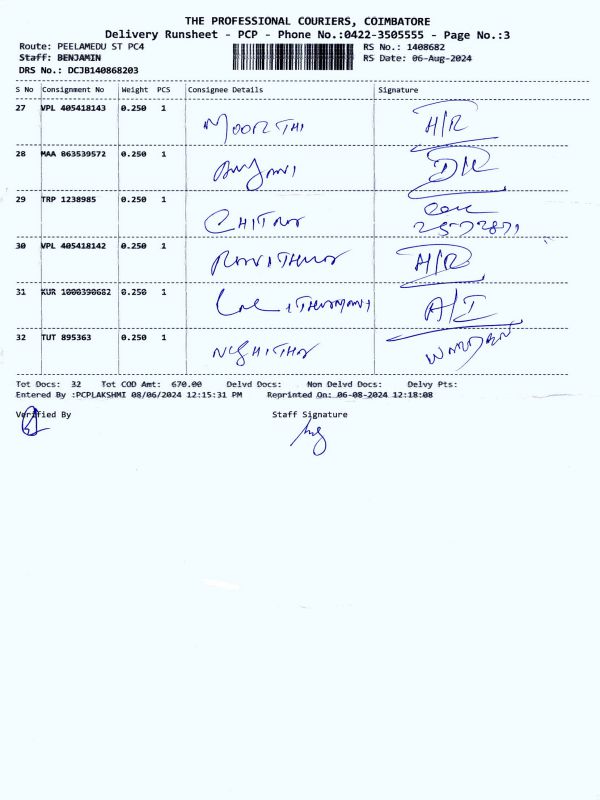 THE PROFESSIONAL COURIERS, COIMBATORE
Delivery Runsheet - PCP - Phone No.:0422-3505555 - Page No.:3
Route: PEELAMEDU ST PC4 RS No.: 1408682
Staff: BENJAMIN RS Date: 06-Aug-2024
DRS No.: DCJB140868203
S No Consignment No Weight PCS Consignee Details Signature
27 VPL 405418143 0.250 1 MOORTHI A/R
28 MAA 863539572 0.250 1
29 TRP 1238985 0.250 1
30 VPL 405418142 0.250 1 A/R
31 KUR 1000390682 0.250 1
32 TUT 895363 0.250 1
Tot Docs: 32 Tot COD Amt: 670.00 Delvd Docs: Non Delvd Docs: Delvy Pts:
Entered By :PCPLAKSHMI 08/06/2024 12:15:31 PM Reprinted On: 06-08-2024 12:18:08
Verified By Staff Signature